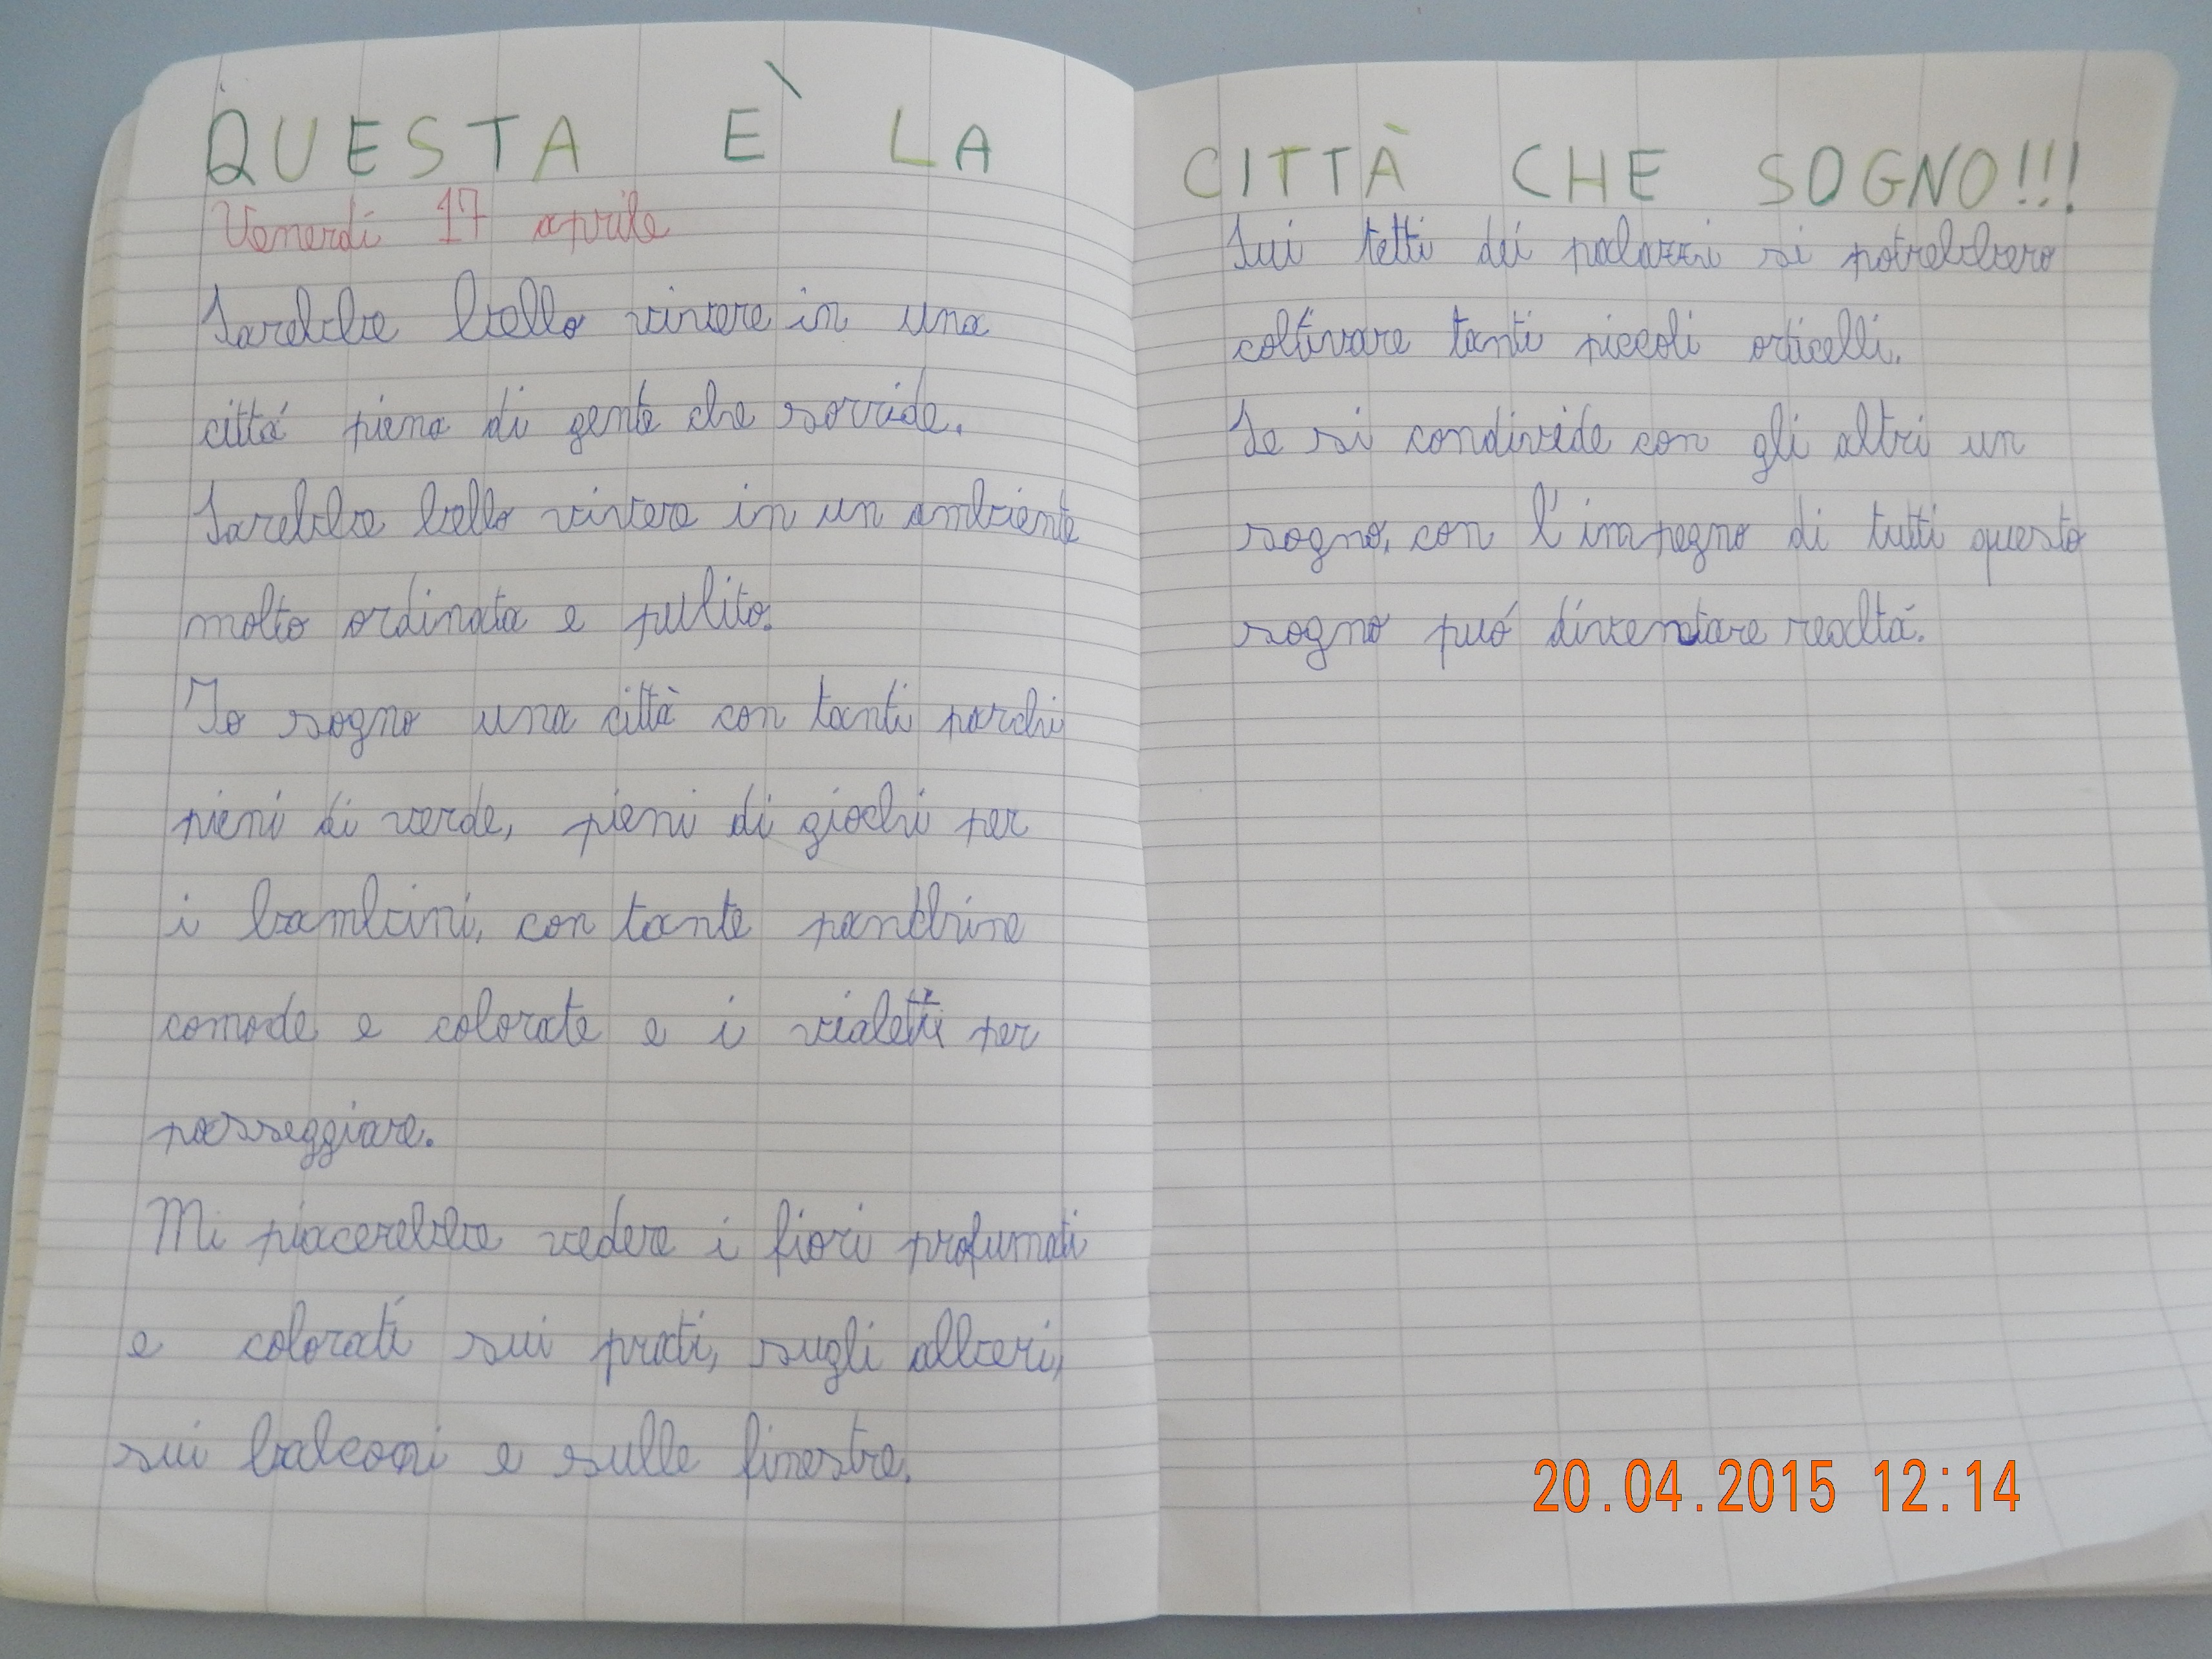 QUESTA È LA CITTÀ CHE SOGNO!!!
Venerdì 17 aprile
Sarebbe bello vivere in una
cittá piena di gente che sorride.
Sarebbe bello vivere in un ambiente
molto ordinata e pulito.
Io sogno una città con tanti parchi
pieni di verde, pieni di giochi per
i bambini, con tante panchine
comode e colorate e i vialetti per
passeggiare.
Mi piacerebbe vedere i fiori profumati
e colorati sui prati, sugli alberi,
sui balconi e sulle finestre.
Sui tetti dei palazzi si potrebbero
coltivare tanti piccoli orticelli.
Se si condivide con gli altri un
sogno, con l'impegno di tutti questo
sogno puó diventare realtá.
20.04.2015 12:14